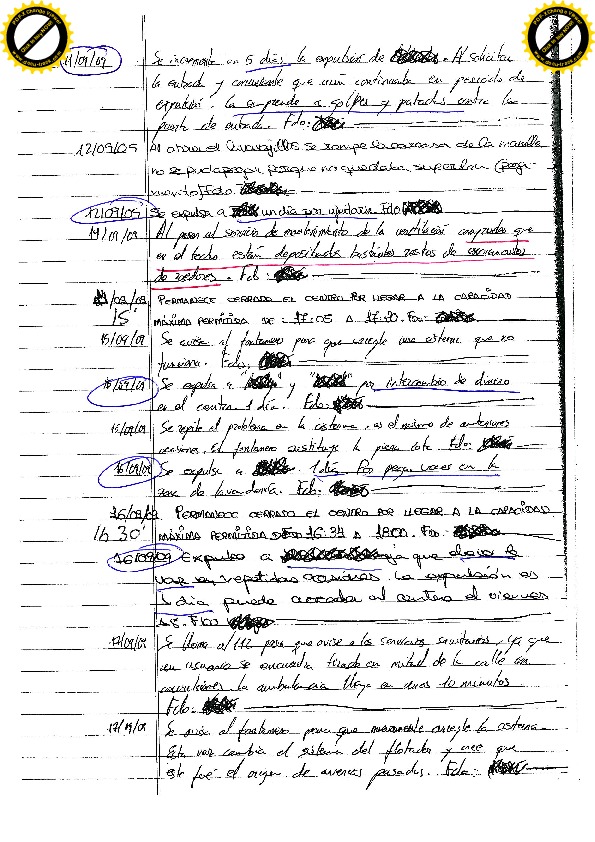 11/09/09 Se incrementa en 5 días la expulsión de . Al solicitar
la entrada y comunicarle que aún continuaba en periodo de
expulsión. La emprende a golpes y patadas contra la
puerta de entrada. Fdo:
12/09/09 Al abrir el se rompe la de la manilla
no se puede porque no quedaba (pega-
mento) Fdo
12/09/09 Se expulsa a un día por Fdo
14/09/09 Al pasar el servicio de mantenimiento de la ventilación comprueba que
en el techo están depositados bastantes restos de excrementos
de roedores. Fdo:
/09/09 PERMANECE CERRADO EL CENTRO POR LLEGAR A LA CAPACIDAD
15' MÁXIMA PERMITIDA DE: 17:05 A 17:20. FDO:
15/09/09 Se avisa al fontanero para que arregle una cisterna que no
funciona. Fdo:
15/09/09 Se expulsa a " " y " " por intercambio de dinero
en el centro 1 día. Fdo:
15/09/09 Se repite el problema en la cisterna, es el mismo de anteriores
ocasiones. El fontanero sustituye la pieza rota. Fdo:
16/09/09 Se expulsa a 1 día. Por pegar voces en la
zona de lavandería. Fdo:
16/09/09 PERMANECE CERRADO EL CENTRO POR LLEGAR A LA CAPACIDAD
1h 30' MÁXIMA PERMITIDA DE 16:34 A 18:00. FDO:
16/09/09 Expulso a ya que eleva la
voz en repetidas ocasiones. La expulsión es
1 día puede acceder al centro el viernes
18. Fdo
17/09/09 Se llama al 112 para que avise a los servicios sanitarios, ya que
un usuario se encuentra tirado en mitad de la calle con
convulsiones. La ambulancia llega en unos 10 minutos
Fdo:
17/09/09 Se avisa al fontanero para que nuevamente arregle la cisterna.
Esta vez cambia el sistema del flotador y cree que
este fué el origen de averías pasadas. Fdo: